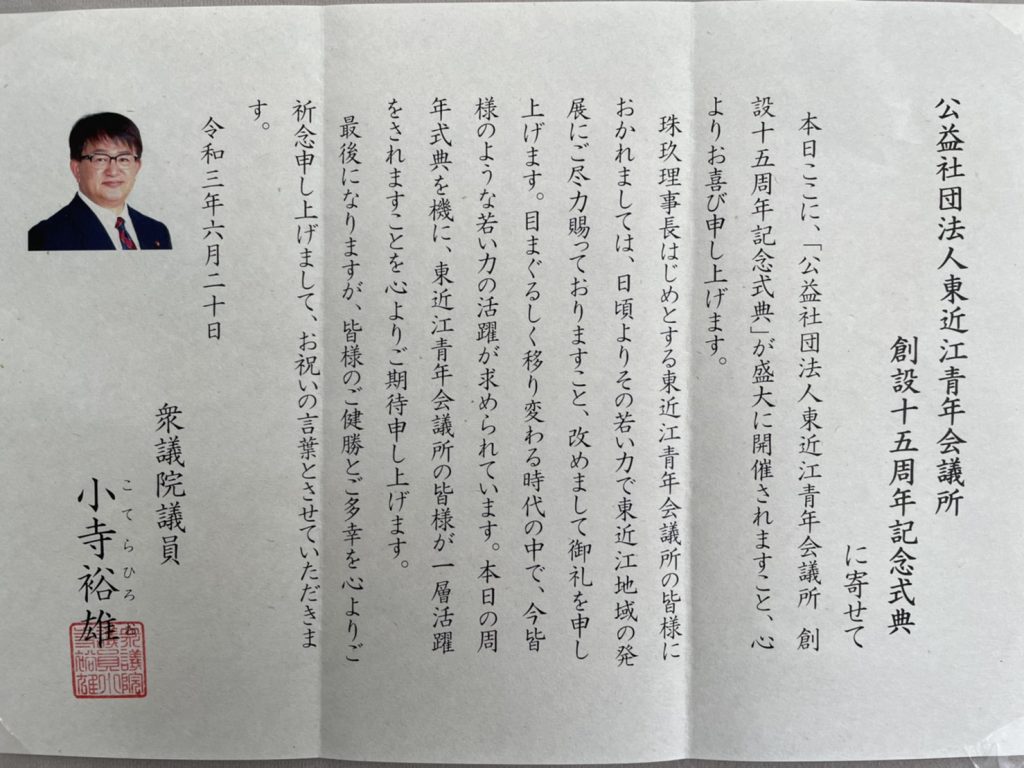 公益社団法人東近江青年会議所
創設十五周年記念式典
に寄せて
本日ここに、「公益社団法人東近江青年会議所 創
設十五周年記念式典」が盛大に開催されますこと、心
よりお喜び申し上げます。
珠玖理事長はじめとする東近江青年会議所の皆様に
おかれましては、日頃よりその若い力で東近江地域の発
展にご尽力賜っておりますこと、改めまして御礼を申し
上げます。目まぐるしく移り変わる時代の中で、今皆
様のような若い力の活躍が求められています。本日の周
年式典を機に、東近江青年会議所の皆様が一層活躍
をされますことを心よりご期待申し上げます。
最後になりますが、皆様のご健勝とご多幸を心よりご
祈念申し上げまして、お祝いの言葉とさせていただきま
す。
令和三年六月二十日
衆議院議員
こてらひろお
小寺裕雄
衆議院
議員小
寺裕雄